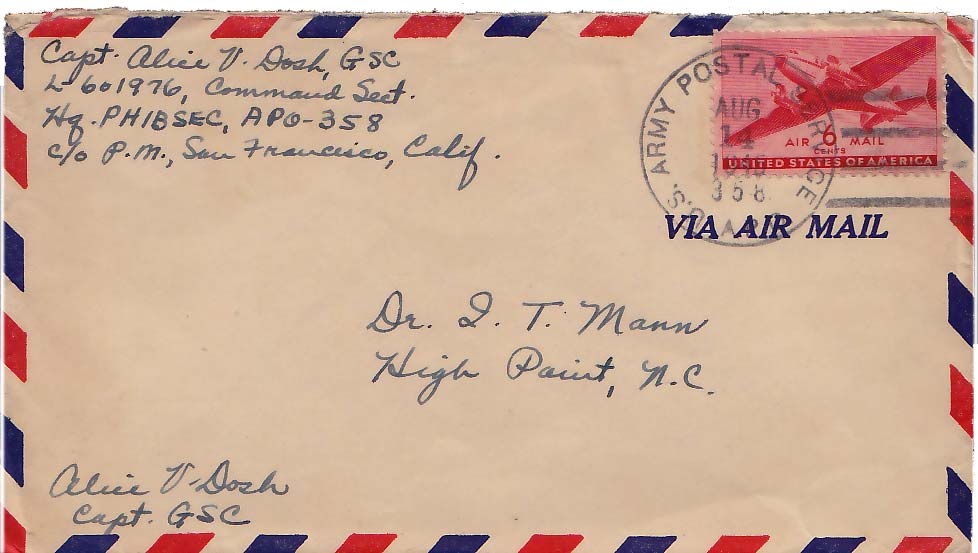 Capt. Alice V. Dosh, GSC
L-601976, Command Sect.
Hq. PHIBSEC, APO-358
c/o P.M., San Francisco, Calif.
ARMY POSTAL SERVICE
AUG
14
1945
358
AIR 6 MAIL
CENTS
UNITED STATES OF AMERICA
VIA AIR MAIL
Dr. I. T. Mann
High Point, N.C.
Alice V Dosh
Capt. GSC